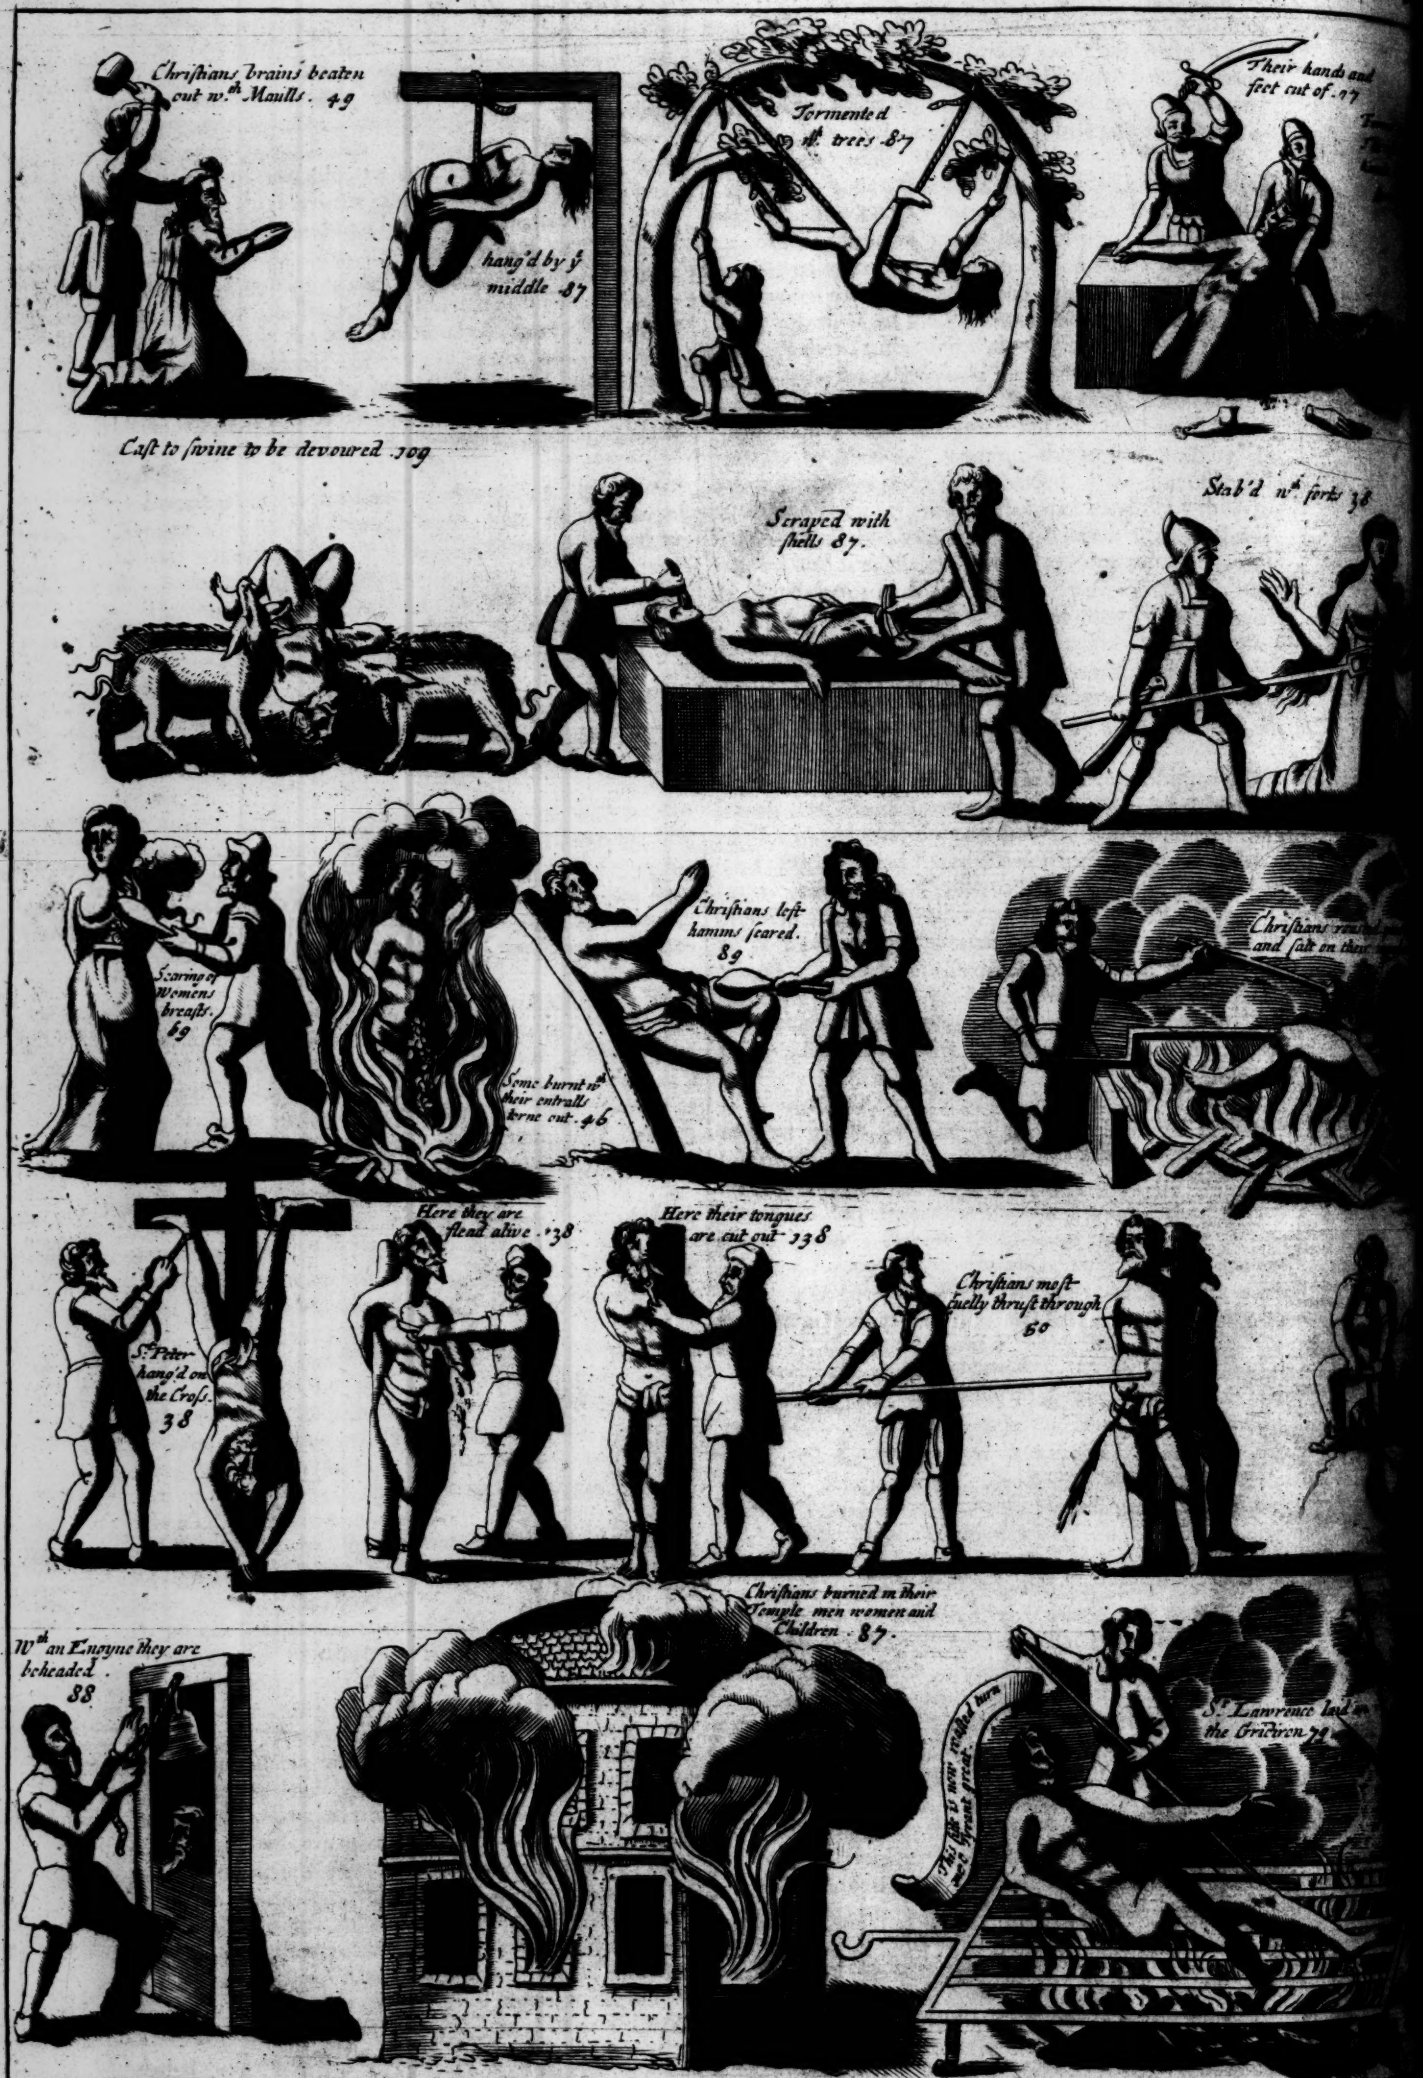 Chriſtians brains beaten
out wth Maulls. 49
hang'd by ẏ
middle .87
Tormented
wth trees .87
Their hands and
feet cut of.
Caſt to ſwine to be devoured .109
Scraped with
ſhells 87.
Stab'd wth forks 38
Searing of
Womens
breaſts.
Some burnt wth
their entralls
torne out .46
Chriſtians left
hamms ſeared.
89
Chriſtians
and ſalt on their
St Peter
hang'd on
the Croſs.
38
Here they are
flead alive .138
Here their tongues
are cut out 138
Chriſtians moſt
cuelly thruſt through
50
Wth an Engyne they are
beheaded .
88
Chriſtians burned in their
Temple men women and
Children . 87.
This ſide is now roaſted turn
Tyrant great
St Lawrence laid on
the Gridiron 79